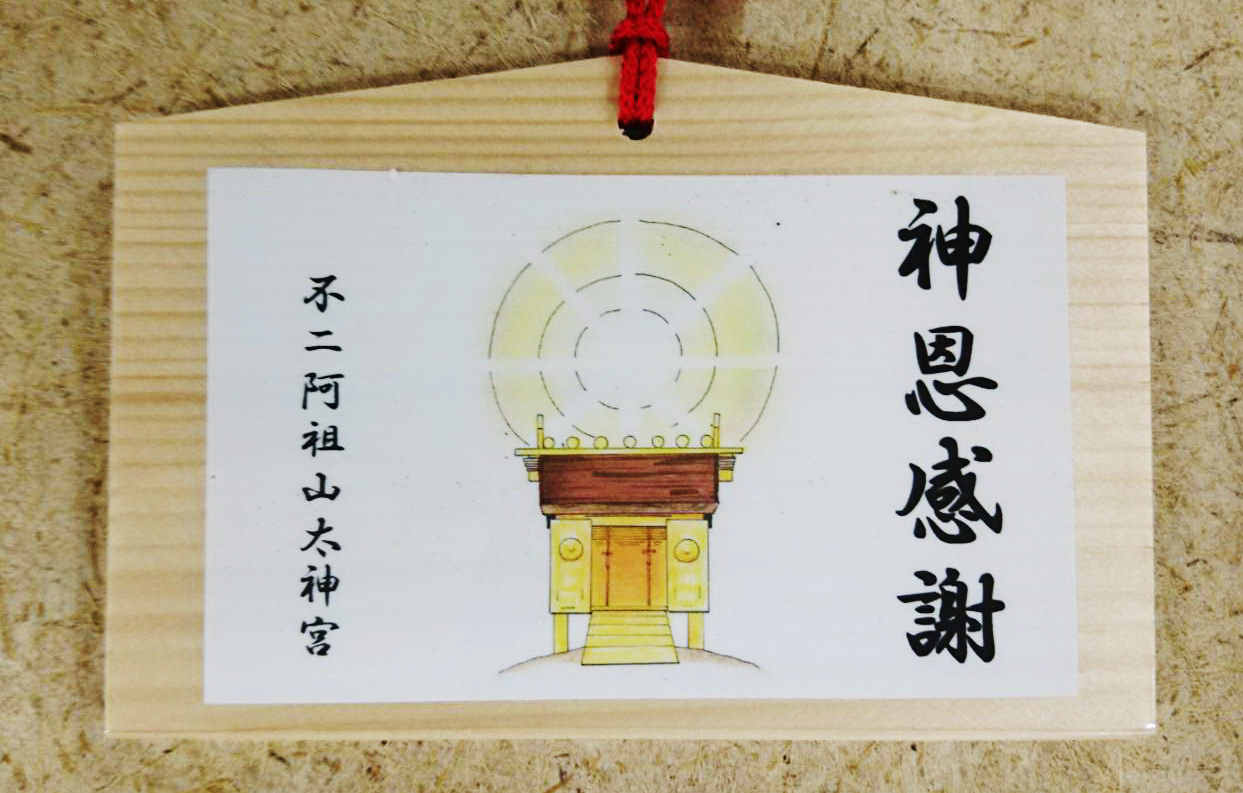 神恩感謝
不二阿祖山太神宮